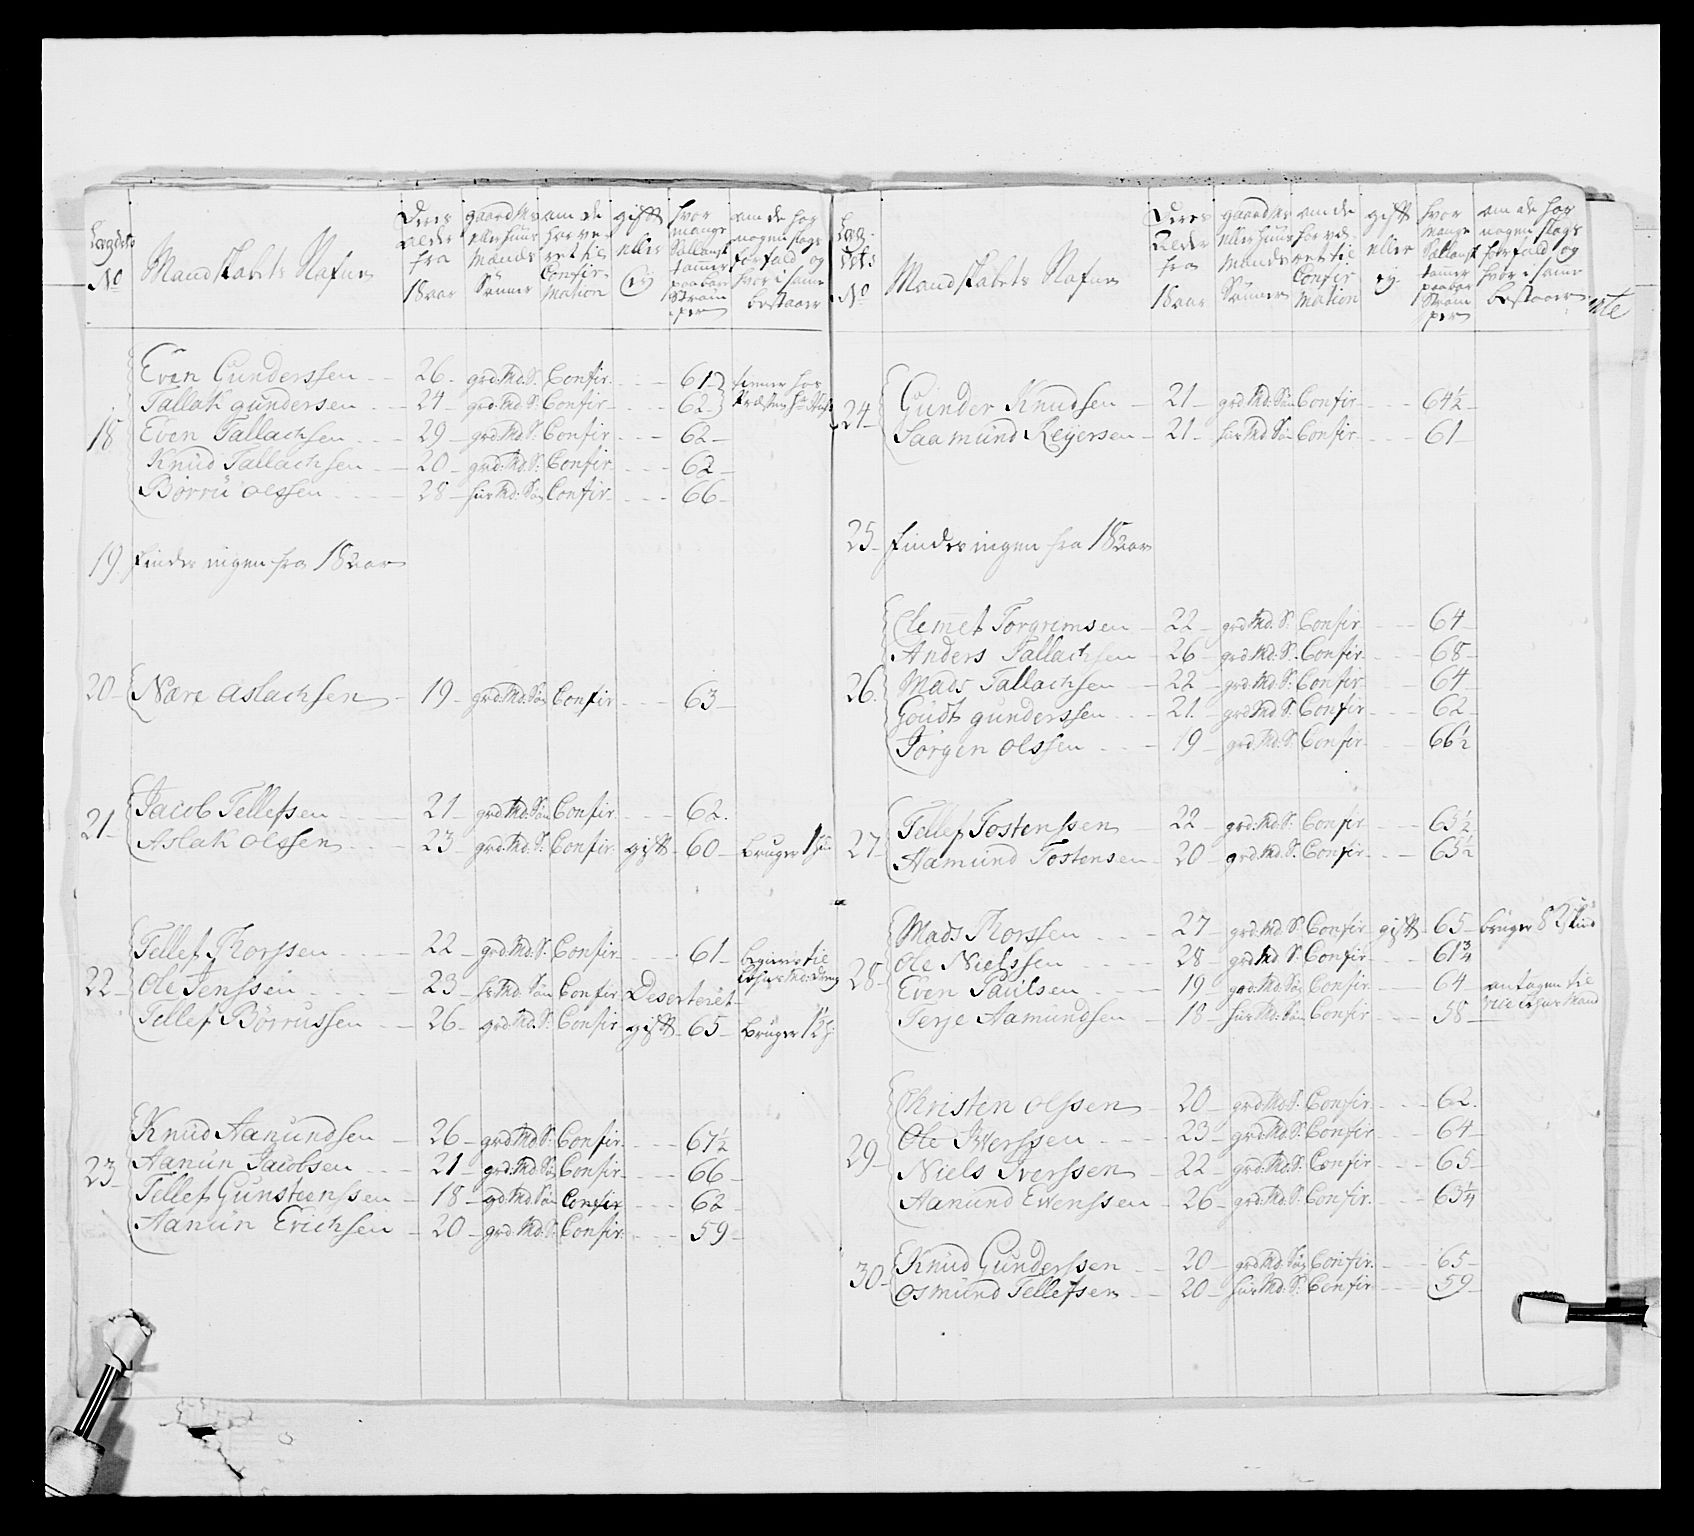 Lægdets No
Mandskabets Nafne
Deres Alder fra 18 aar
gaardMs eller huus Mands Sønner
om de har været til Confirmation
gifft eller Ey
hvor mange Sællandsk tommer paa bare Strømper
om de har nogen slags forfald og hvor i samme bestaaer
18
Even Gunderssen - 26 - grd: Md: S: Confir - 61 - tiener hos
Tallak gundersen - 24 - grd: Md: S: Confir - 62 - Præsten
Even Tallachsen - 29 - grd: Md: S: Confir - 62 -
Knud Tallachsen - 20 - grd: Md: S: Confir - 62 -
Børru olssen - 28 - huus Md: Søn Confir - 66 -
19 findes ingen fra 18 aar
20 - Nare Aslachsen - 19 - grd: Md: Søn Confir - 63 -
21 -
Jacob Tellefsen - 21 - grd: Md: Søn Confir - 62.
Aslak olssen - 23 - grd: Md: S: Confir gifft - 60 - Bruger 1
22 -
Tellef Thorssen - 22 - grd: Md: S: Confir - 61 - begierer til
Ole Jenssen - 23 - hs Md: Søn Confir Deserteret
Tellef Børrussen - 26 - grd: Md: S: Confir gifft - 65 - Bruger 1½
23
Knud Aanundsen - 26 - grd: Md: S: Confir - 67½
Aanun Jacobsen - 21 - grd: Md: Søn Confir - 66 -
Tellef Gunstenssen - 18 - gd: Md: Søn Confir - 62
Aanun Erichsen - 20 - grd: Md: S: Confir - 59 -
Lægdets No
Mandskabets Nafne
Deres Alder fra 18 aar
gaardMs eller huus Mands Sønner
om de har været til Confirmation
gifft eller ey
hvor mange Sællandsk tommer paa bare Strømper
om de har nogen slags forfald og hvor i samme bestaaer
24 -
Gunder Knudsen - 21 - grd: Md: Søn Confir - 64½ -
Saamund Reijersen - 21 - huus Md Søn Confir - 61 -
25 - findes ingen fra 18 aar
26.
Clemet Torgrimsen - 22 - grd Md: S: Confir - 64 -
Anders Tallachsen - 26 - grd: Md: S: Confir - 68 -
Mads Tallachsen - 22 - grd: Md: S: Confir - 64 -
Goudt gunderssen - 21 - grd Md S: Confir - 62 -
Jørgen olssen - 19 - grd: Md: S: Confir - 66½
27 -
Tellef Tostenssen - 22 - grd: Md: S: Confir - 63½
Aamund Tostensen - 20 - grd: Md: S: Confir - 65½
28 -
Mads Thorssen - 27 - grd: Md S: Confir gifft - 65 - bruger 8
Ole Nielssen - 28 - grd Md S: Confir - 61¾
Even Paulsen - 19 - grd: Md: Søn Confir - 64 - antagen til
Terje Aamundsen - 18 - huus Md: Søn Confir - 58 -
29 -
Christen olssen - 20 - grd: Md: S: Confir - 62.
Ole Iverssen - 23 - grd: Md: S: Confir - 64 -
Niels Iverssen - 22 - grd: Md: S: Confir - 65 -
Aanund Evenssen - 26 - grd: Md: S: Confir - 63¼
30 -
Knud Gunderssen - 20 - grd: Md: Søn Confir - 65 -
osmund Tellefsen - 20 - huus Md: S: Confir - 59 -